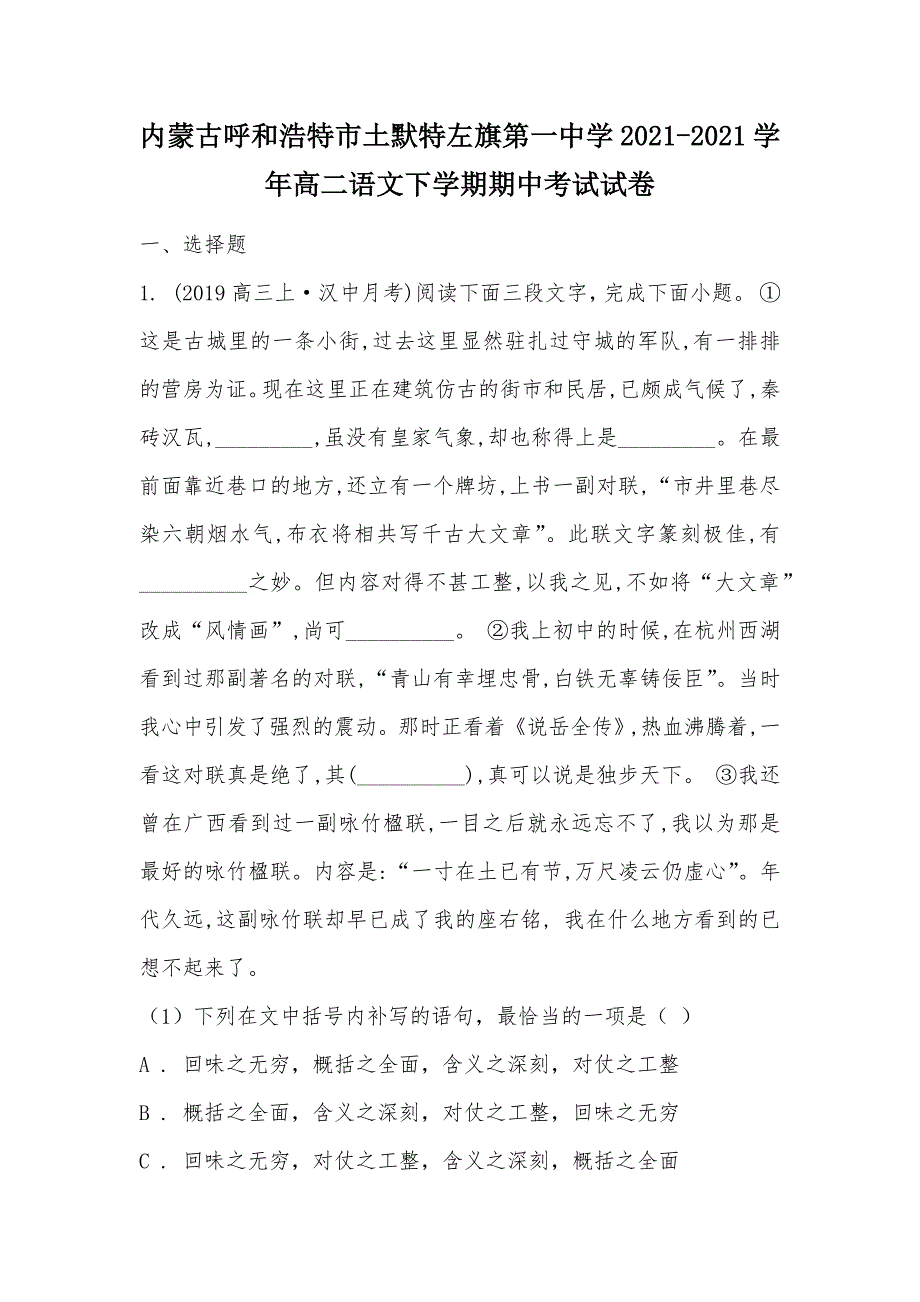 内蒙古呼和浩特市土默特左旗第一中学2021-2021学
年高二语文下学期期中考试试卷
一、选择题
1. (2019高三上·汉中月考)阅读下面三段文字，完成下面小题。 ①
这是古城里的一条小街,过去这里显然驻扎过守城的军队,有一排排
的营房为证。现在这里正在建筑仿古的街市和民居,已颇成气候了,秦
砖汉瓦,_________,虽没有皇家气象,却也称得上是_________。在最
前面靠近巷口的地方,还立有一个牌坊,上书一副对联,“市井里巷尽
染六朝烟水气,布衣将相共写千古大文章”。此联文字篆刻极佳,有
__________之妙。但内容对得不甚工整,以我之见,不如将“大文章”
改成“风情画”,尚可__________。 ②我上初中的时候,在杭州西湖
看到过那副著名的对联,“青山有幸埋忠骨,白铁无辜铸佞臣”。当时
我心中引发了强烈的震动。那时正看着《说岳全传》,热血沸腾着,一
看这对联真是绝了,其(__________),真可以说是独步天下。 ③我还
曾在广西看到过一副咏竹楹联,一目之后就永远忘不了,我以为那是
最好的咏竹楹联。内容是:“一寸在土已有节,万尺凌云仍虚心”。年
代久远,这副咏竹联却早已成了我的座右铭, 我在什么地方看到的已
想不起来了。
（1）下列在文中括号内补写的语句，最恰当的一项是（ ）
A . 回味之无穷，概括之全面，含义之深刻，对仗之工整
B . 概括之全面，含义之深刻，对仗之工整，回味之无穷
C . 回味之无穷，对仗之工整，含义之深刻，概括之全面